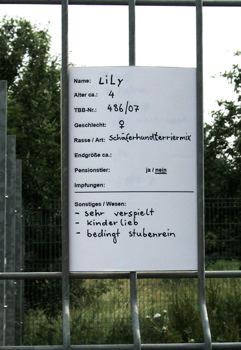 Name: LiLy
Alter ca.: 4
TBB-Nr.: 486/07
Geschlecht: ♀
Rasse / Art: Schäferhundterriermix
Endgröße ca.:
Pensionstier: ja / nein
Impfungen:
Sonstiges / Wesen:
- sehr verspielt
- kinderlieb
- bedingt stubenrein